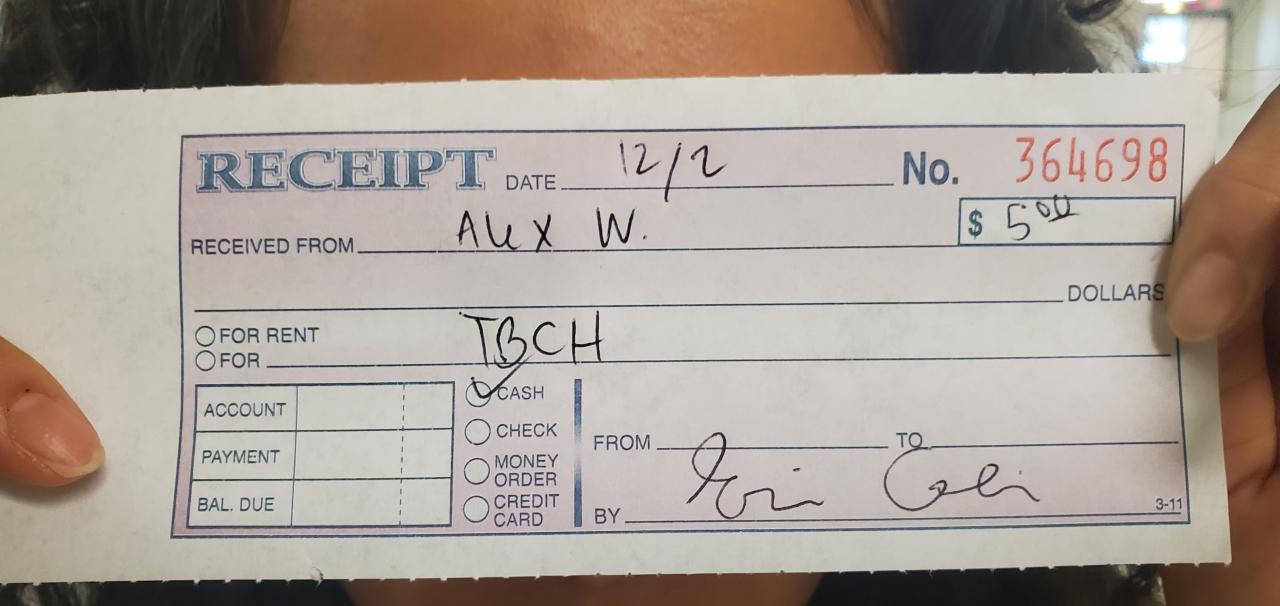 RECEIPT DATE 12/2 No. 364698
RECEIVED FROM Alex W. $ 5 00
DOLLARS
FOR RENT
FOR TBCH
ACCOUNT CASH
CHECK
PAYMENT FROM TO
MONEY ORDER
BAL. DUE CREDIT CARD BY
3-11